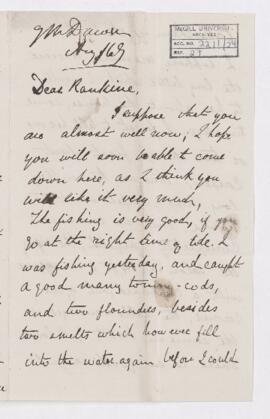 GM Dawson
Aug/67
McGILL UNIVERSITY
ARCHIVES
ACC. NO. 2211/54
REF. 27
Dear Rankine,
I suppose that you
are almost well now; I hope
you will soon be able to come
down here, as I think you
will like it very much,
The fishing is very good, if you
go at the right time of tide. I
was fishing yesterday, and caught
a good many tommy-cods,
and two flounders, besides
two smelts which however fell
into the water again before I could